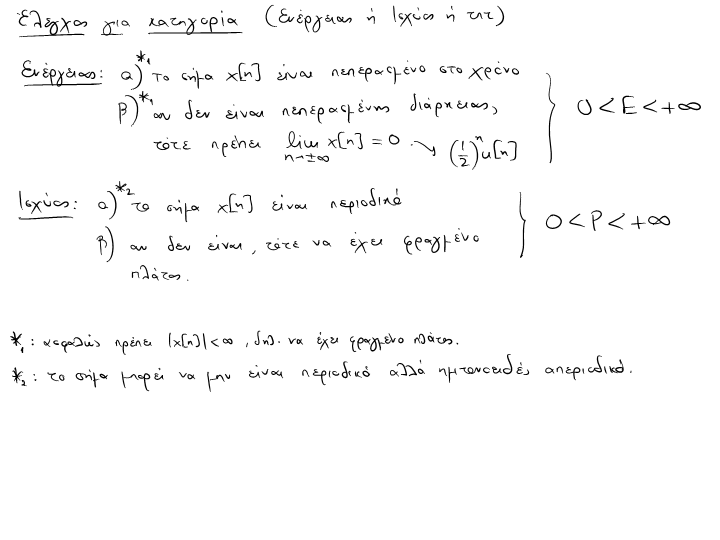 Έλεγχος για κατηγορία (Ενέργειας ή Ισχύος ή τπτ)
Ενέργειας: α)*1 το σήμα x[n] είναι πεπερασμένο στο χρόνο
β)*1 αν δεν είναι πεπερασμένης διάρκειας,
τότε πρέπει lim x[n] = 0 → (1/2)^n u[n]
n→±∞
0 < E < +∞
Ισχύος: α)*2 το σήμα x[n] είναι περιοδικό
β) αν δεν είναι, τότε να έχει φραγμένο
πλάτος.
0 < P < +∞
*1 : ασφαλώς πρέπει |x[n]| < ∞, δηλ. να έχει φραγμένο πλάτος.
*2 : το σήμα μπορεί να μην είναι περιοδικό αλλά ημιτονοειδές απεριοδικό.